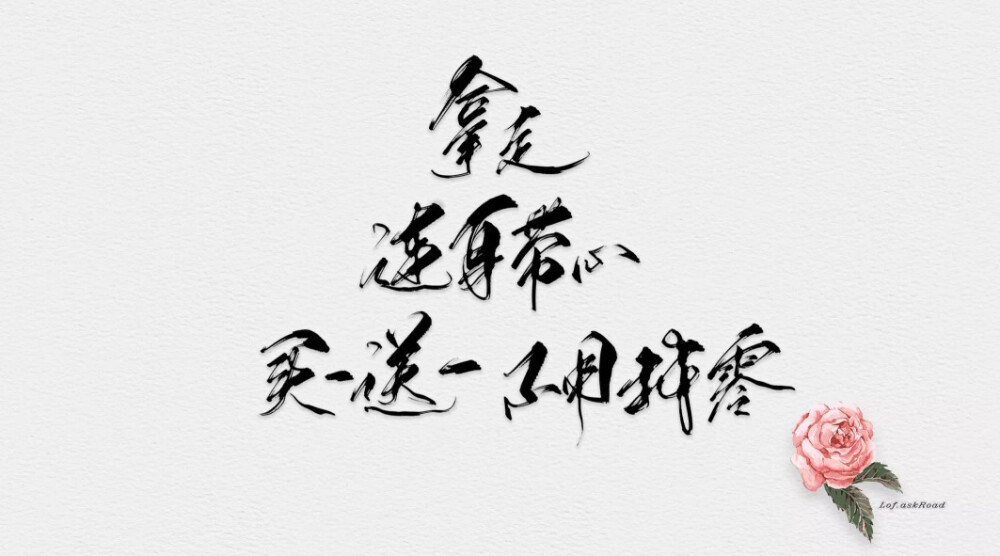 拿走
连身带心
买一送一 不用找零
Lof.askRoad